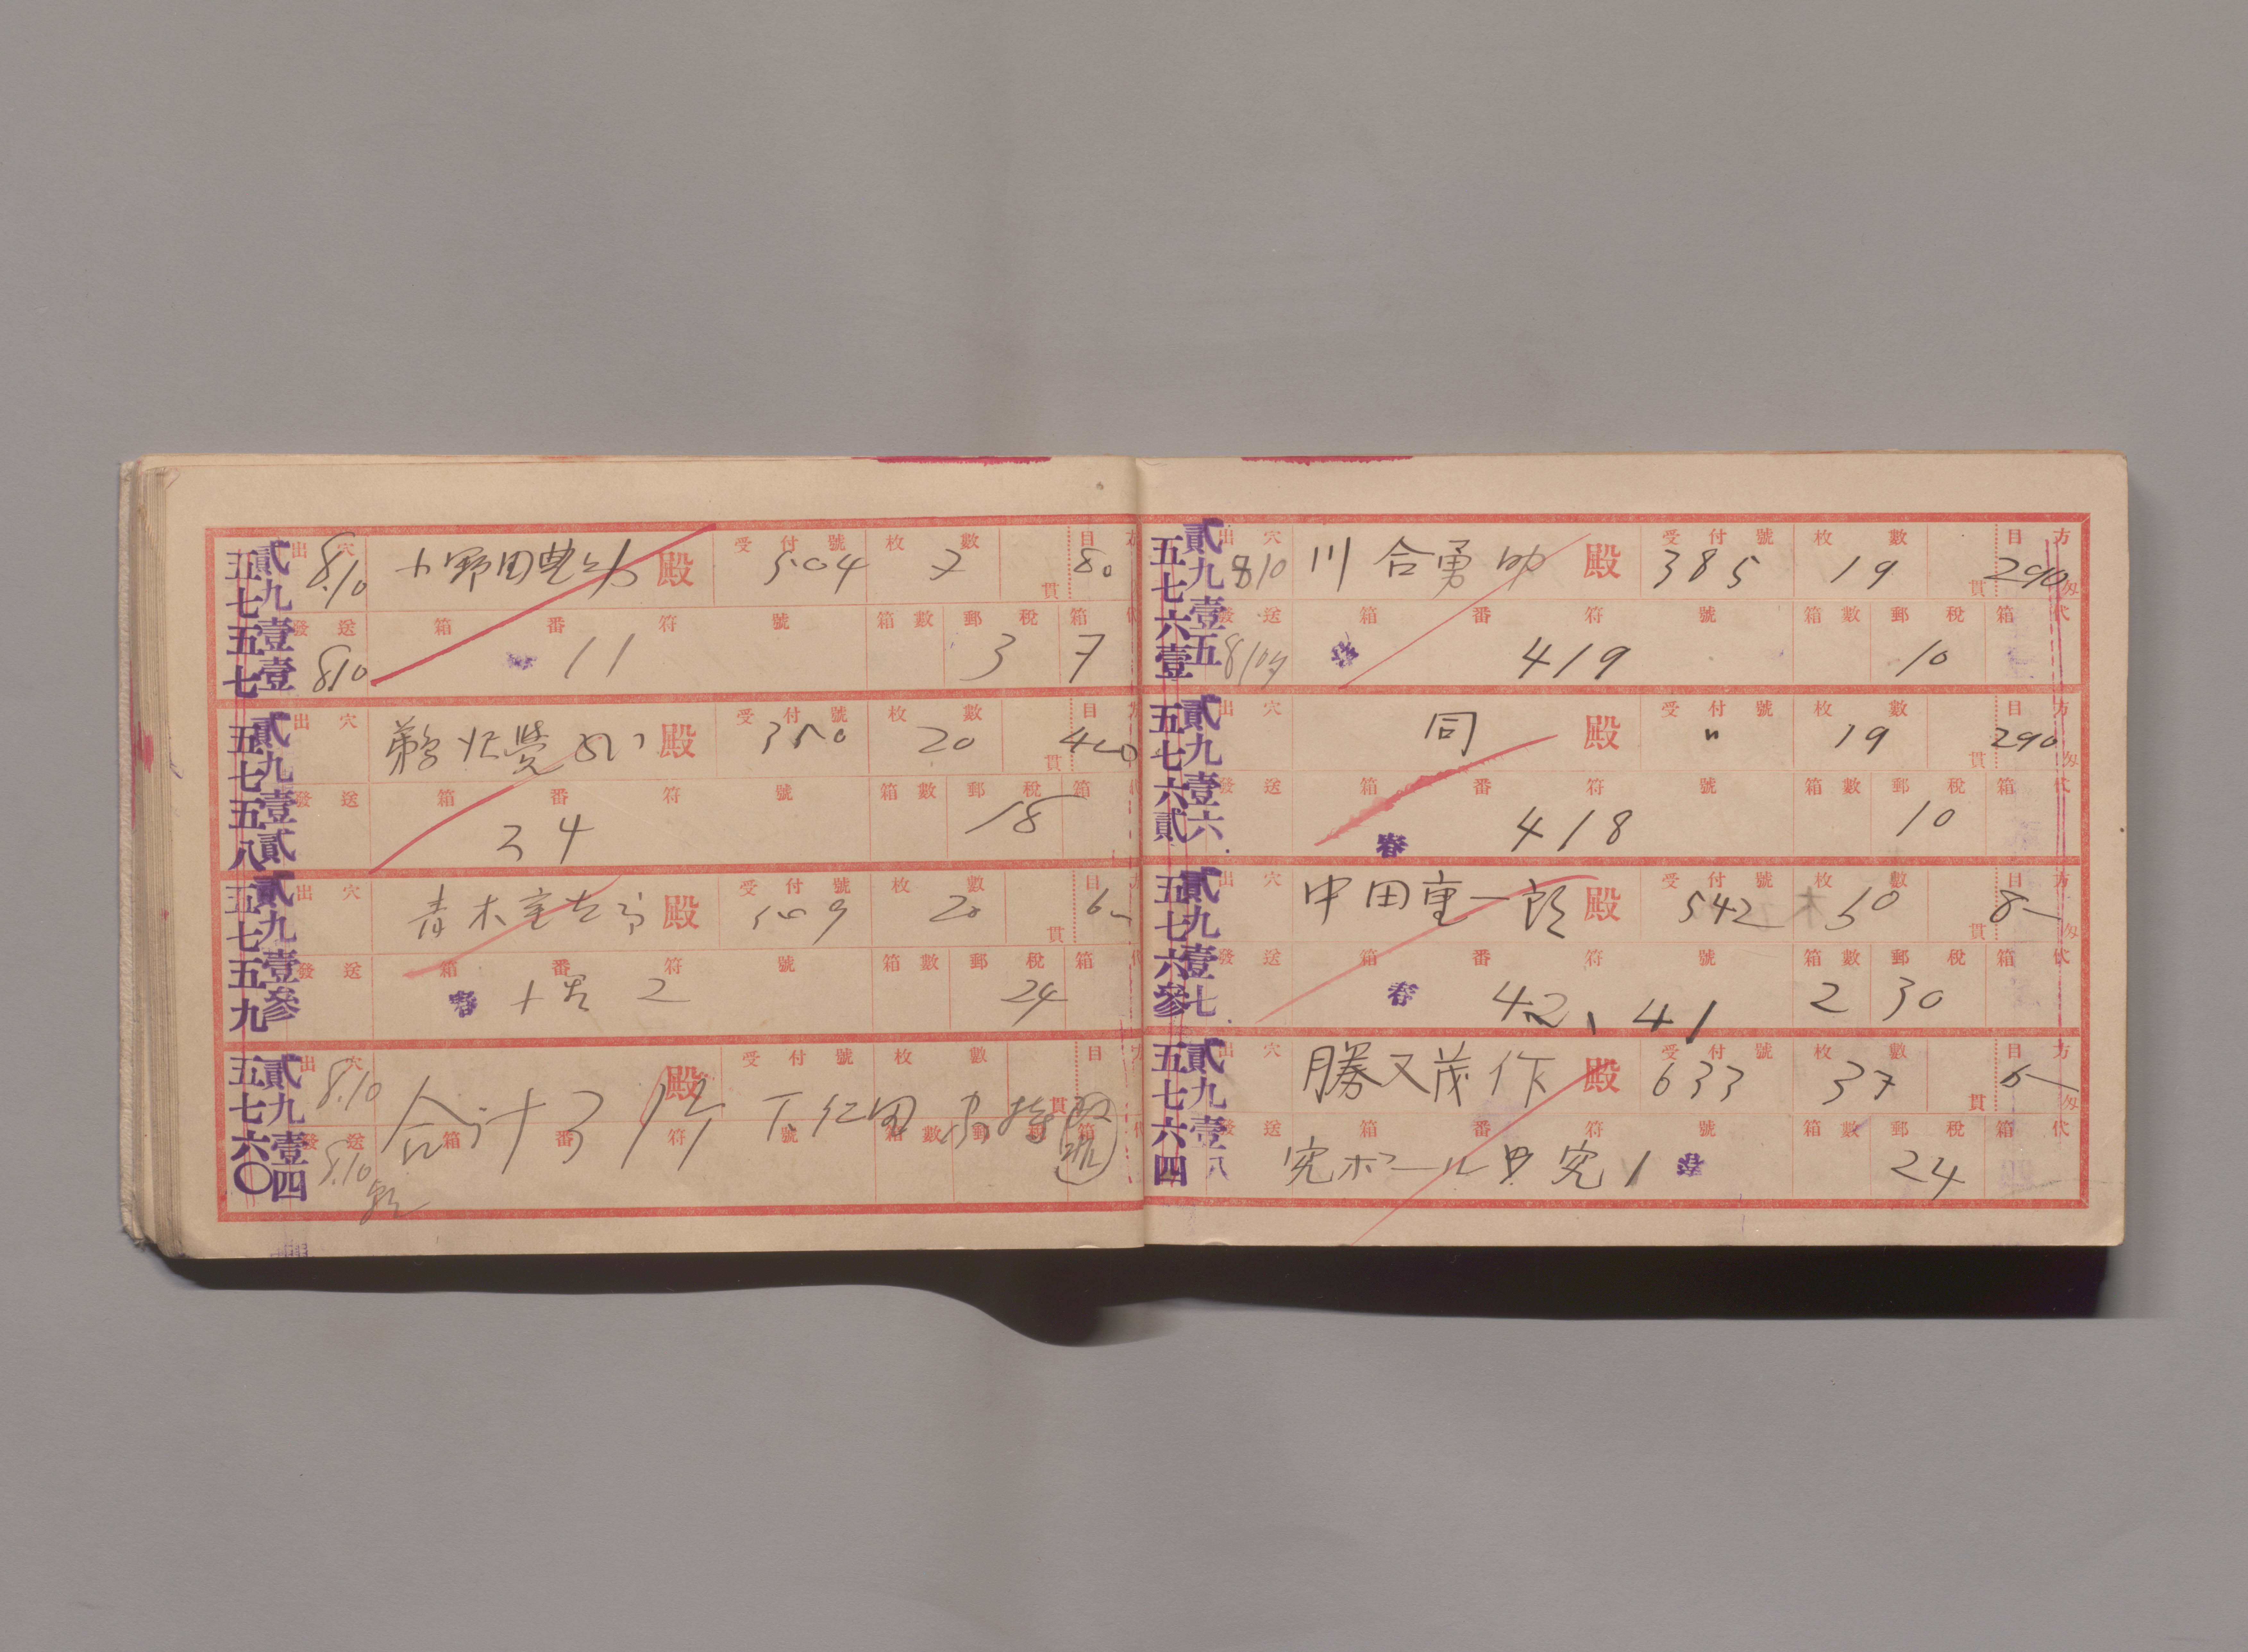 貳九壹壹
五七五七
出穴 8.10 小野田 殿 受付號 504 枚數 7 貫 目 80
發送 8.10 箱番符號 11 箱數 郵税 3 箱 7
貳九壹貳
五七五八
出穴 殿 受付號 350 枚數 20 貫 目 400
發送 箱番符號 34 箱數 郵税 18 箱
貳九壹參
五七五九
出穴 青木 殿 受付號 509 枚數 20 貫 目
發送 箱番符號 春 2 箱數 郵税 24 箱
貳九壹四
五七六〇
出穴 8.10 合計 3 件 殿 受付號 下仁田 枚數 貫 目
發送 8.10 箱番符號 箱數 郵税 箱
貳九壹五
五七六壹
出穴 810 川合勇助 殿 受付號 385 枚數 19 貫 目方 290 匁
發送 箱番符號 春 419 箱數 郵税 10 箱代
貳九壹六
五七六貳
出穴 同 殿 受付號 〃 枚數 19 貫 目方 290 匁
發送 箱番符號 春 418 箱數 郵税 10 箱代
貳九壹七
五七六參
出穴 中田重一郎 殿 受付號 542 枚數 50 貫 目方 8- 匁
發送 箱番符號 春 42、41 箱數 2 郵税 30 箱代
貳九壹八
五七六四
出穴 勝又茂作 殿 受付號 633 枚數 37 貫 目方 匁
發送 箱番符號 ボール 1 春 箱數 郵税 24 箱代